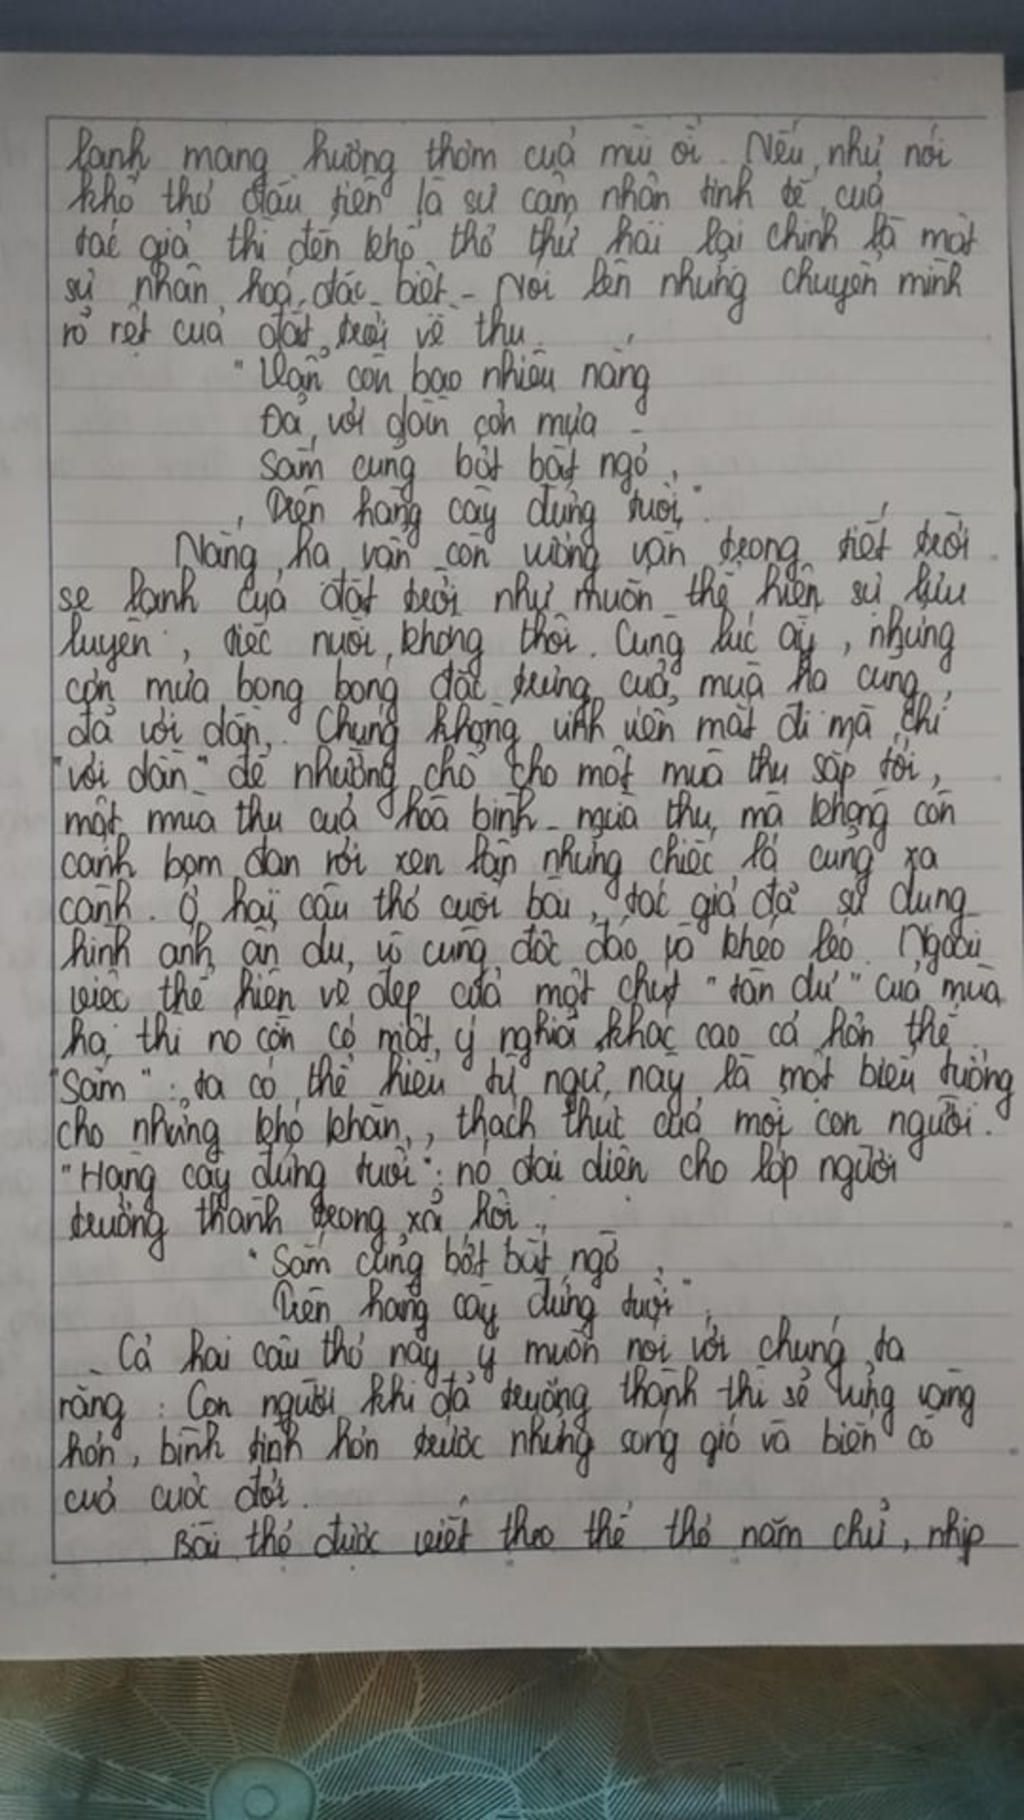 lạnh mang hương thơm của mùi ổi. Nếu như nói
khổ thơ đầu tiên là sự cảm nhận tinh tế của
tác giả thì đến khổ thơ thứ hai lại chính là một
sự nhân hoá đặc biệt - Nói lên những chuyển mình
rõ rệt của đất trời về thu.
"Vẫn còn bao nhiêu nắng
Đã vơi dần cơn mưa -
Sấm cũng bớt bất ngờ,
Trên hàng cây đứng tuổi."
Nắng hạ vẫn còn vương vấn trong tiết trời
se lạnh của đất trời như muốn thể hiện sự lưu
luyến, tiếc nuối không thôi. Cùng lúc ấy, những
cơn mưa bong bóng đặc trưng của mùa hạ cũng
đã vơi dần. Chúng không vĩnh viễn mất đi mà chỉ
"vơi dần" để nhường chỗ cho một mùa thu sắp tới,
một mùa thu của hoà bình - mùa thu mà không còn
cảnh bom đạn rơi xen lẫn những chiếc lá cung xa
cành. Ở hai câu thơ cuối bài, tác giả đã sử dụng
hình ảnh ẩn dụ vô cùng độc đáo và khéo léo. Ngoài
việc thể hiện vẻ đẹp của một chút "tàn dư" của mùa
hạ thì nó còn có một ý nghĩa khác cao cả hơn thế.
"Sấm": ta có thể hiểu từ ngữ này là một biểu tượng
cho những khó khăn, thách thức của mỗi con người.
"Hàng cây đứng tuổi": nó đại diện cho lớp người
trưởng thành trong xã hội.
"Sấm cũng bớt bất ngờ
Trên hàng cây đứng tuổi"
Cả hai câu thơ này ý muốn nói với chúng ta
rằng: Con người khi đã trưởng thành thì sẽ vững vàng
hơn, bình tĩnh hơn trước những sóng gió và biến cố
của cuộc đời.
Bài thơ được viết theo thể thơ năm chữ, nhịp